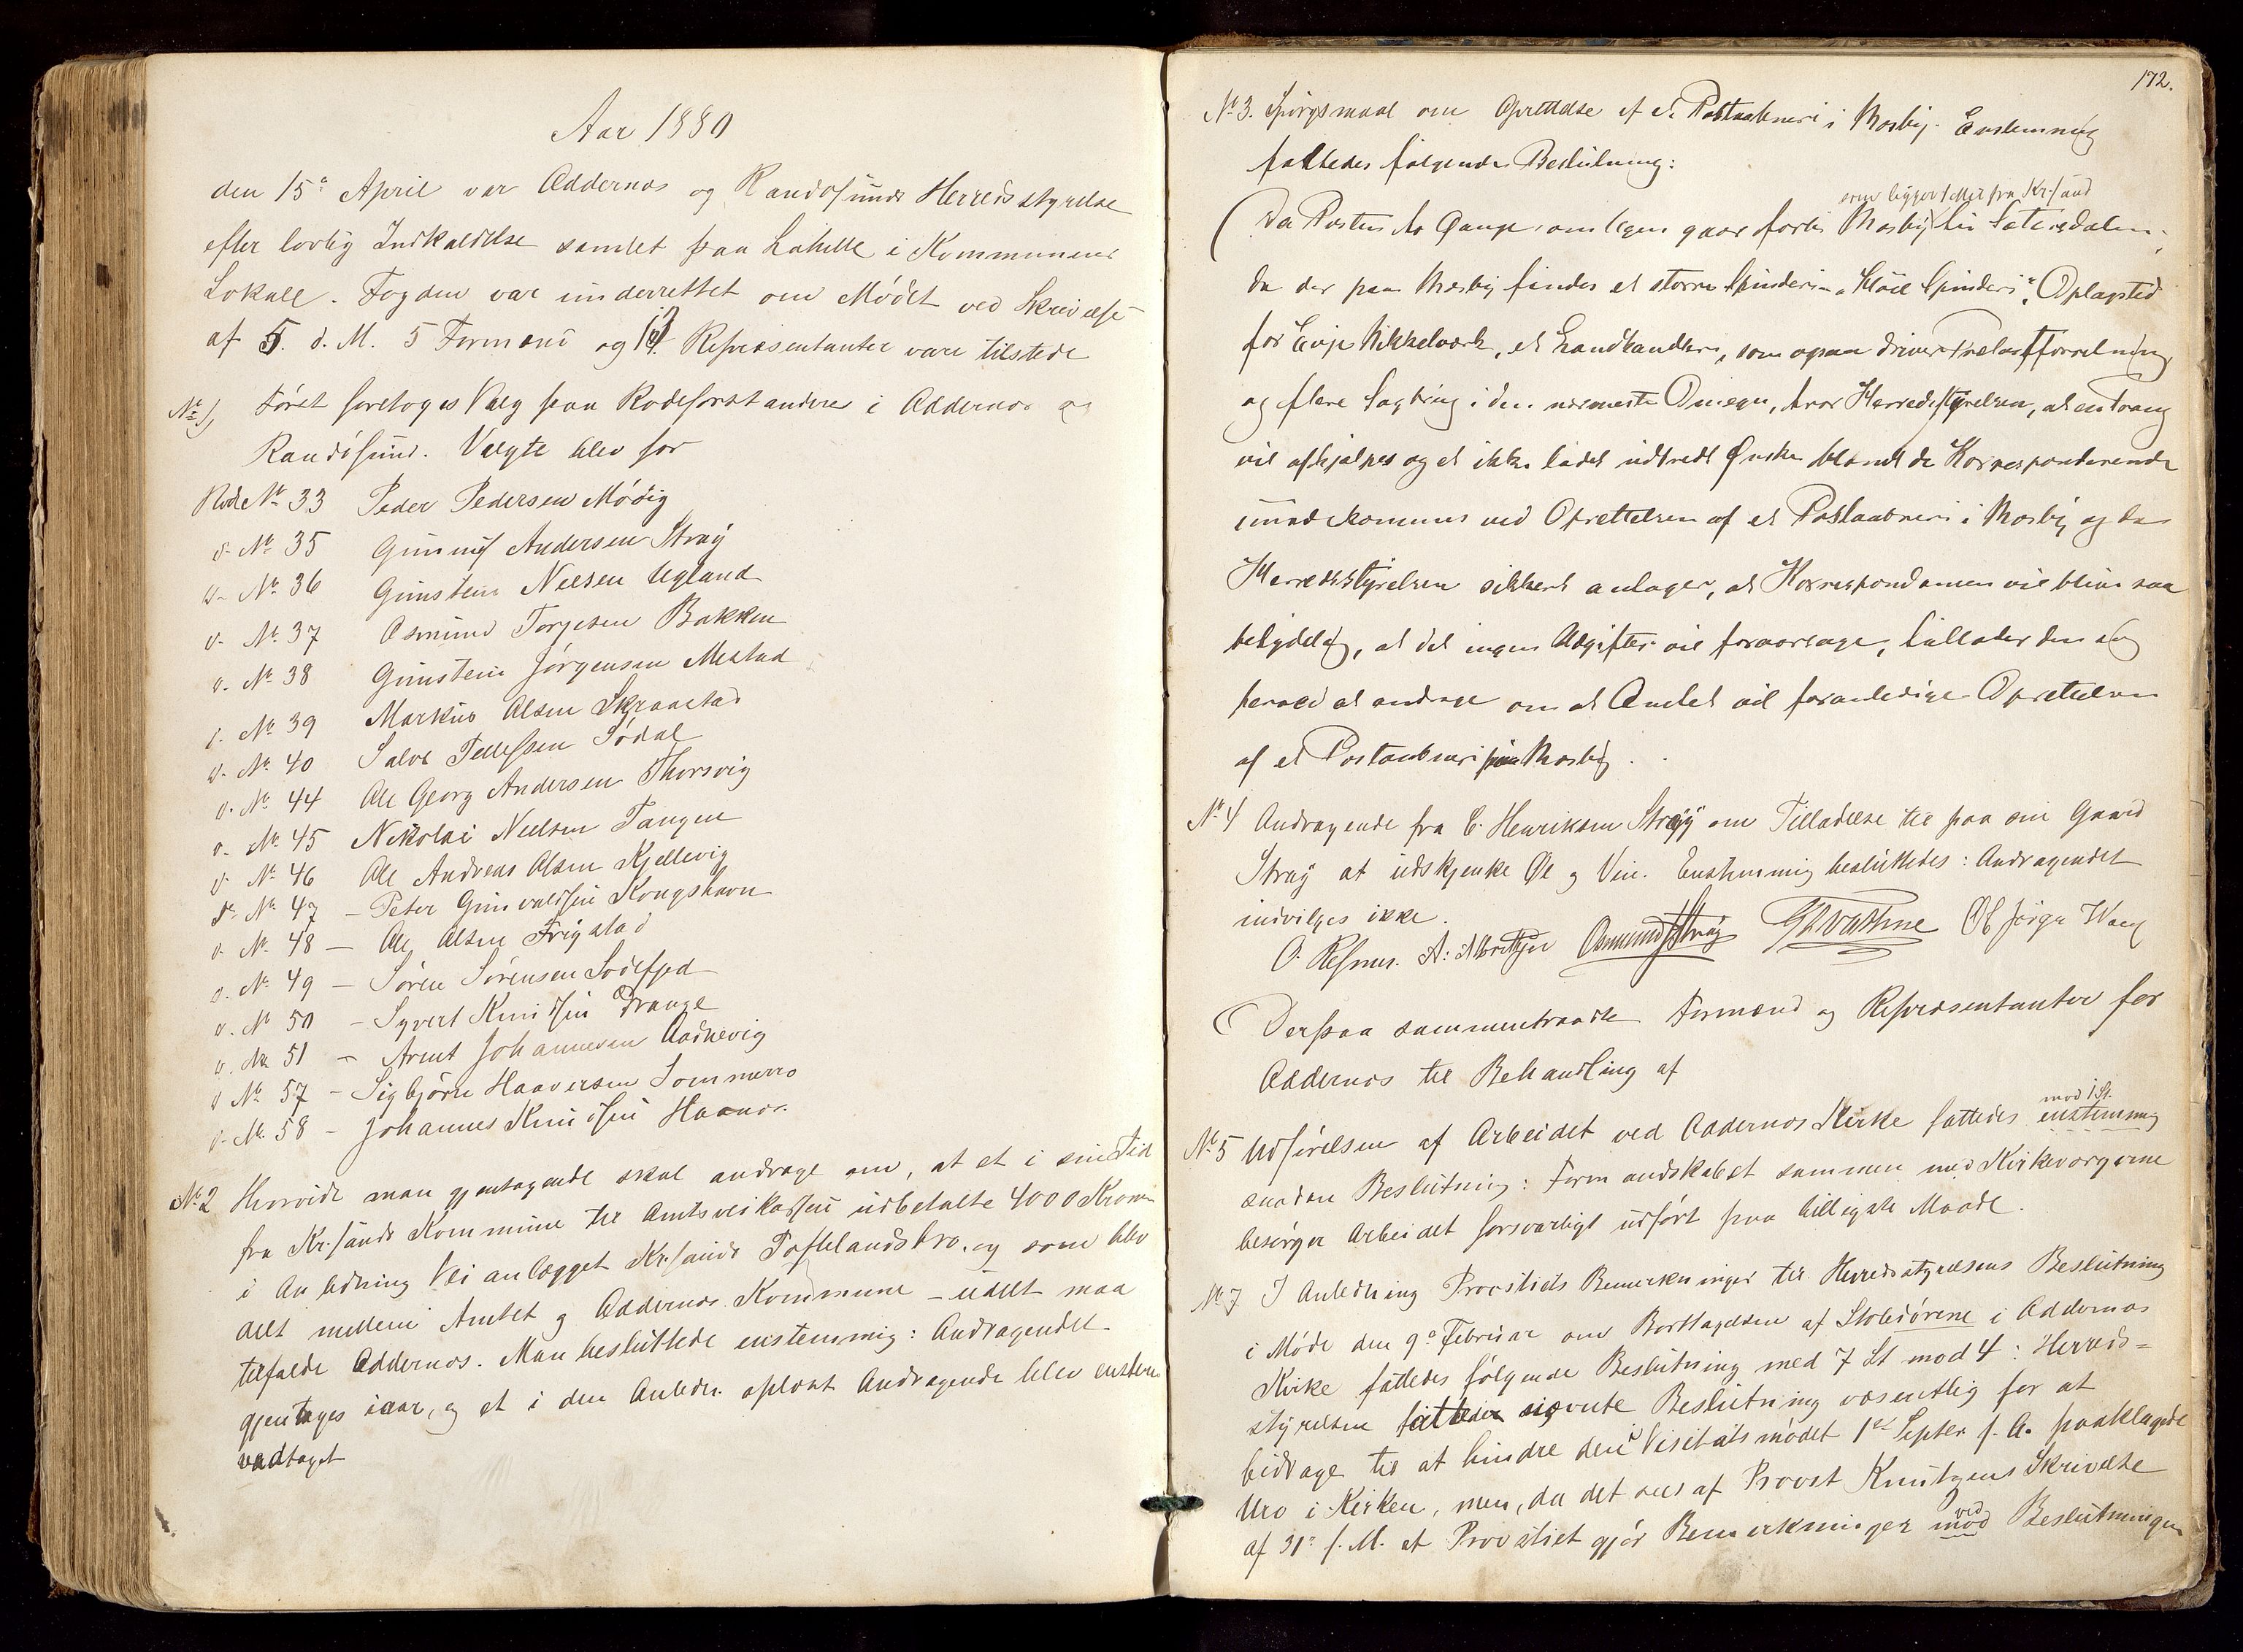 Aar 1880
den 15de April var Oddernes og Randøsunds Herredsstyrelse
efter lovlig Indkaldelse samlet paa Lahelle i Kommunens
Lokale. Fogden var underrettet om Mødet ved Skrivelse
af 5. d. M. 5 Formænd og Repræsentanter vare tilstede
No 1, Først foretoges Valg paa Rodeforstandere i Oddernes og
Randøsund. Valgte blev for
Rode No 33 Peder Pedersen Møvig
d. No 35 Gunnuf Andersen Stray
d. No 36 Gunstein Nilsen Ugland
d. No 37 Osmund Torjesen Bakken
d. No 38 Gunstein Jørgensen Mestad
d. No 39 Markus Olsen Skraastad
d. No 40 Salve Tellefsen Sødal
d. No 44 Ole Georg Andersen Thorsvig
d. No 45 Nikolai Nielsen Tangen
d. No 46 Ole Andreas Olsen Kjellevig
d. No 47 – Peter Gunvaldsen Kongshavn
d. No 48 – Ole Olsen Frigstad
d. No 49 – Søren Sørensen Sodefjed
d. No 50 – Syvert Knudsen Drange
d. No 51 – Arent Johannesen Aadnevig
d No 57 – Sigbjørn Haaversen Sommerro
d. No 58 – Johannes Knudsen Haanes.
No 2 Hvorvidt man gjentagende skal andrage om, at et i sin Tid
fra Kr.sands Kommune til Amtsveikassen udbetalte 4000 Kroner
i Anledning Veianlægget Kr.sands Toftelandsbro, og som blev
delt mellem Amtet og Oddernes Kommune – udelt maa
tilfalde Oddernes. Man besluttede enstemmig: Andragendet
gjentages iaar, og et i den Anledn. oplæst Andragende blev enstem
vedtaget
172.
No 3. Spørgsmaal om Oprettelse af et Postaabneri i Mosby. Enstemmig
fattedes følgende Beslutning:
som ligger 1 Mil fra Kr.sand
Da Posten to Gange om Ugen gaar forbi Mosby til Sætersdalen;
da der paa Mosby findes et større Spinderi „Høie Spinderi“, Oplagsted
for Evje Nikkelværk, et Landhandleri, som ogsaa driver Trælastforretning
og flere Sagbrug i den nærmeste Omegn, tror Herredsstyrelsen, at en Trang
vil afhjælpes og et ikke lidet udbredt Ønske blandt de Korresponderende
imødekommes ved Oprettelsen af et Postaabneri i Mosby og da
Herredsstyrelsen sikkert antager, at Korrespondansen vil blive saa
betydelig, at det ingen Udgifter vil foraarsage, tillader den sig
herved at andrage om at Amtet vil foranledige Oprettelsen
af et Postaabneri paa Mosby.
No 4 Andragende fra C. Henriksen Stray om Tilladelse til paa sin Gaard
Stray at udskjenke Øl og Vin. Enstemmig besluttedes: Andragendet
indvilges ikke.
Osmund Stray
Derpaa sammentraadte Formænd og Repræsentanter for
Oddernes til Behandling af
mod 1 St.
No 5 Udførelsen af Arbeidet ved Oddernes Kirke fattedes enstemmig
saadan Beslutning: Formandskabet sammen med Kirkevergerne
besørger Arbeidet forsvarligt udført paa billigste Maade.
No 7 I Anledning Provstiets Bemerkninger til Herredsstyrelsens Beslutning
i Møde den 9de Februar om Borttagelsen af Stoledørene i Oddernes
Kirke fattedes følgende Beslutning med 7 St mod 4: Herreds-
styrelsen fattede Beslutning væsentlig for at
bidrage til at hindre den i Visitatsmødet 1ste Septbr f. A. paaklagede
Uro i Kirken, men, da det sees af Provst Knutzens Skrivelse
af 31te f. M. at Provstiet gjør Bemerkninger mod ved Beslutningen